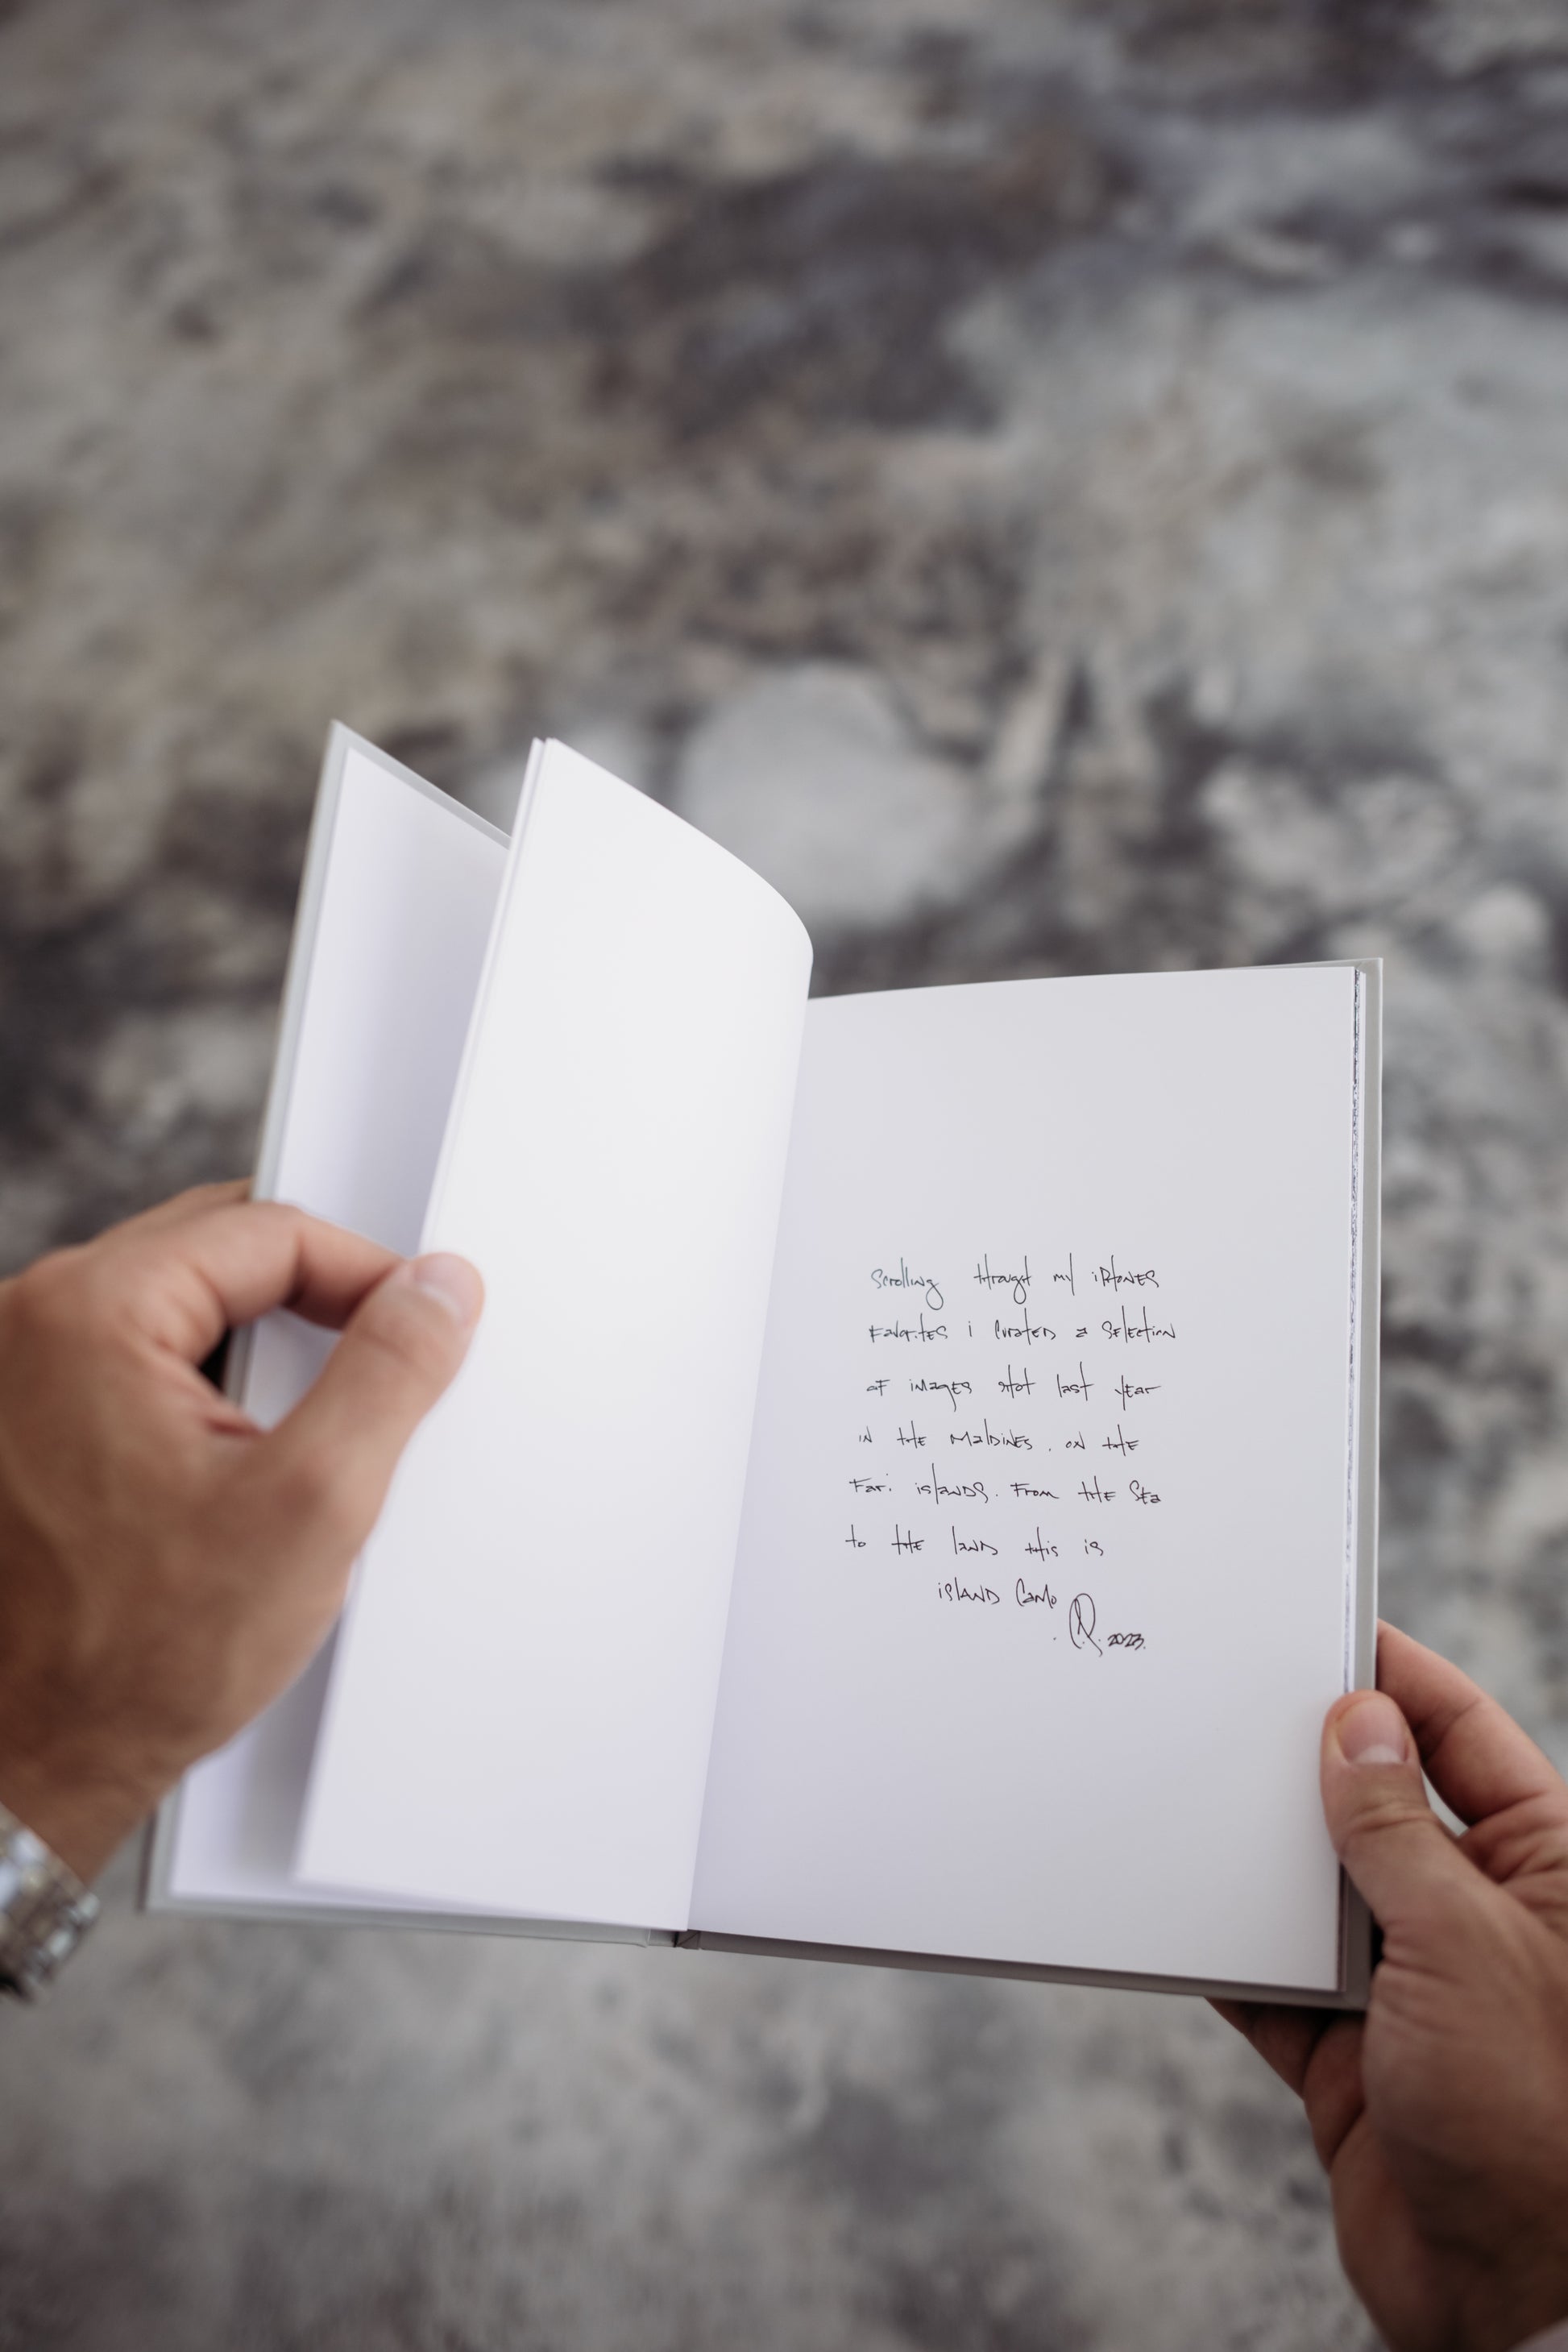 Scrolling through my iPhones
Favorites i curated a selection
of images shot last year
in the Maldives. on the
Fari islands. From the Sea
to the land this is
ISLAND Camo
2023.